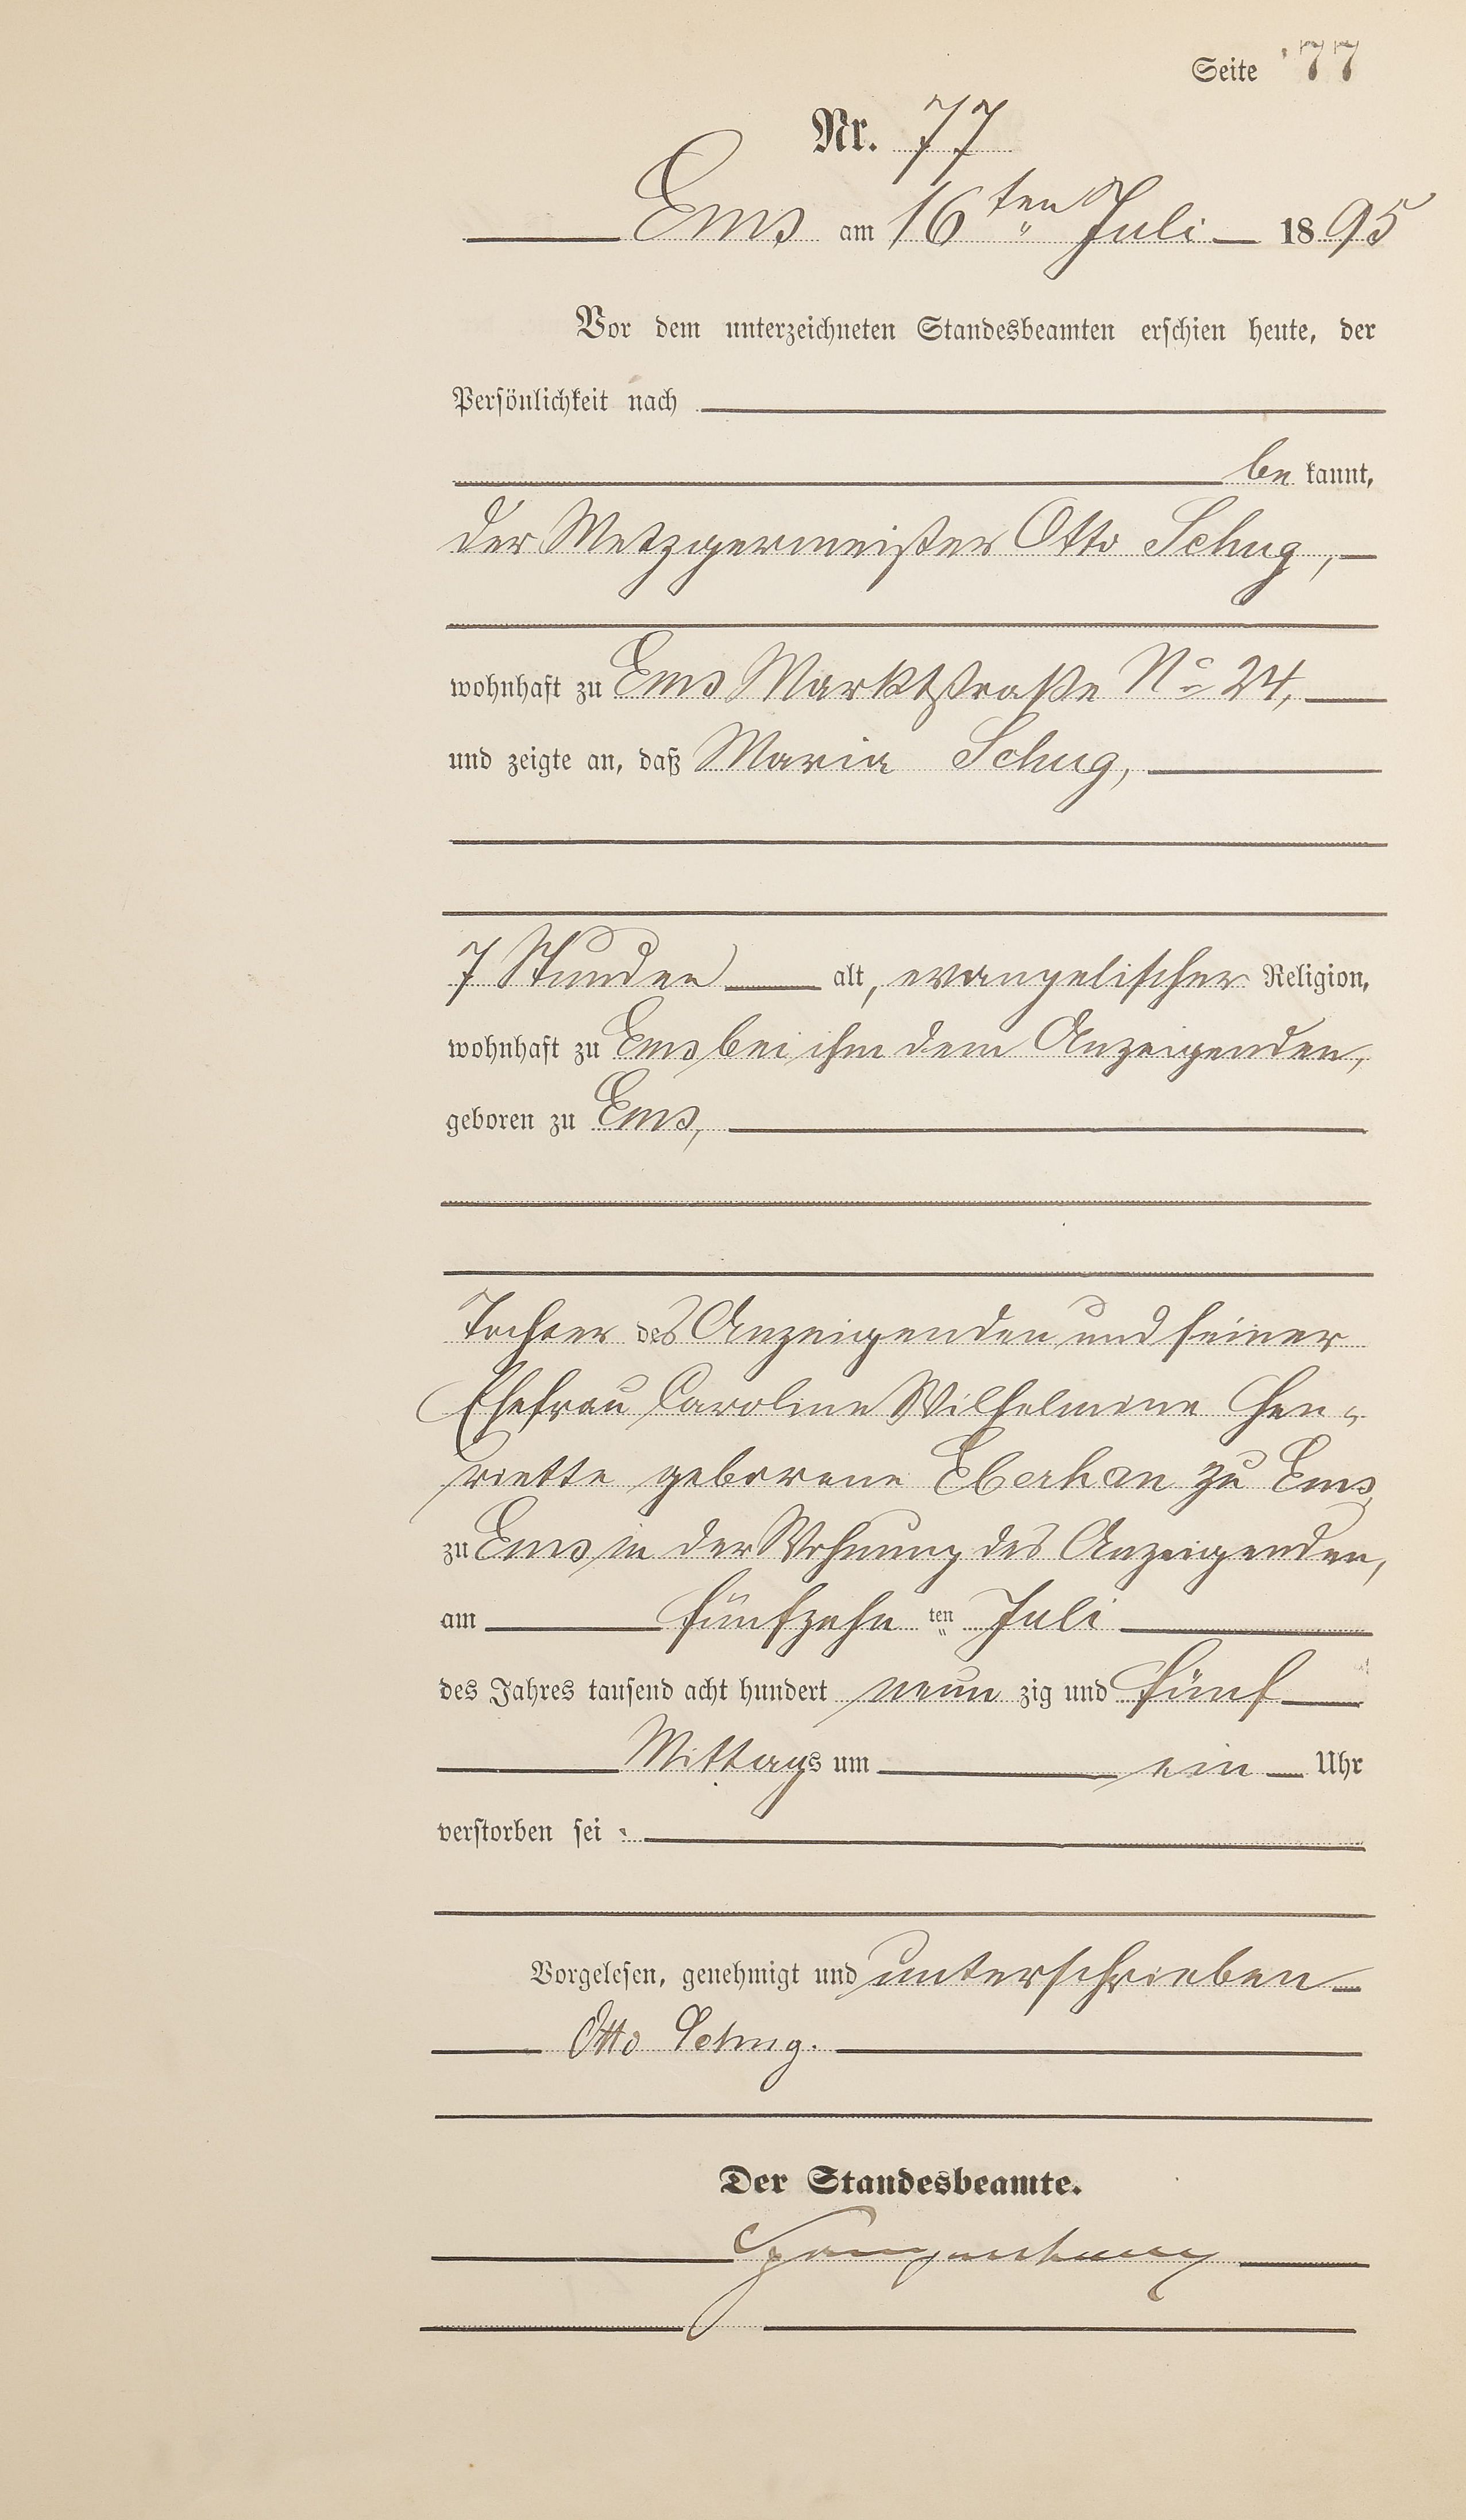 Seite 77
Nr. 77
Ems am 16ten Juli 1895
Vor dem unterzeichneten Standesbeamten erschien heute, der
Persönlichkeit nach
be kannt,
der Metzgermeister Otto Schug,
wohnhaft zu Ems Marktstraße No 24,
und zeigte an, daß Maria Schug,
7 Stunden alt, evangelischer Religion,
wohnhaft zu Ems bei ihm dem Anzeigenden,
geboren zu Ems,
Tochter des Anzeigenden und seiner
Ehefrau Caroline Wilhelmine Hen-
riette geborene Eberhan zu Ems
zu Ems in der Wohnung des Anzeigenden,
am fünfzehn ten Juli
des Jahres tausend acht hundert neun zig und fünf
Mittags um ein Uhr
verstorben sei.
Vorgelesen, genehmigt und unterschrieben
Otto Schug.
Der Standesbeamte.